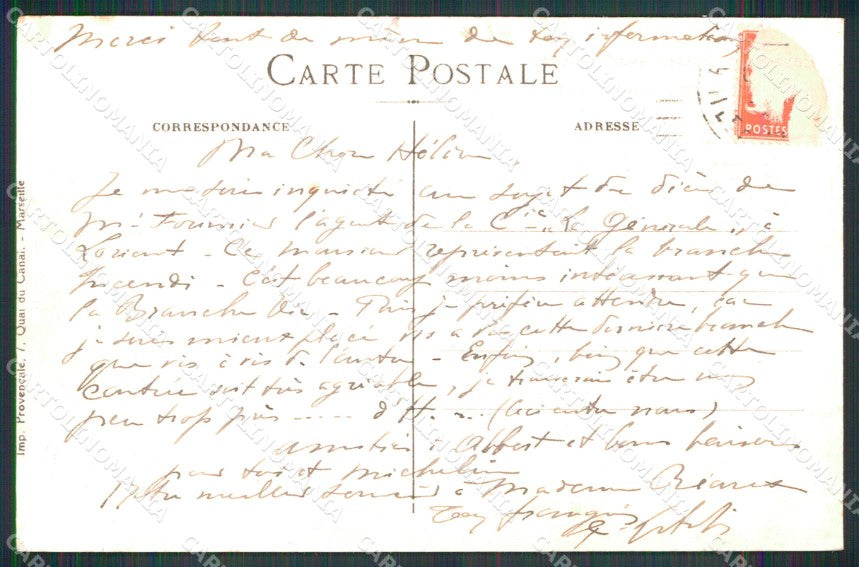 Merci tant de même de tes informations
CARTE POSTALE
CORRESPONDANCE
ADRESSE
POSTES
Ma Chère Hélène
Je me suis inquiété au sujet du décès de
Mr Fournier l'agent de la Cie "La Générale" à
Lorient - Ce monsieur représentant la branche
Incendie - C'est beaucoup moins intéressant que
la Branche Vie - Puis je préfère attendre, car
je suis mieux placé vis à vis cette dernière branche
que vis à vis de l'autre - Enfin, bien que cette
contrée soit très agréable, je trouverais être un
peu trop près ..... d'H.... (ceci entre nous)
amitiés à Albert et bons baisers
pour toi et Micheline
meilleurs à Madame
Imp. Provençale, 7, Quai du Canal. - Marseille
CARTOLINOMANIA